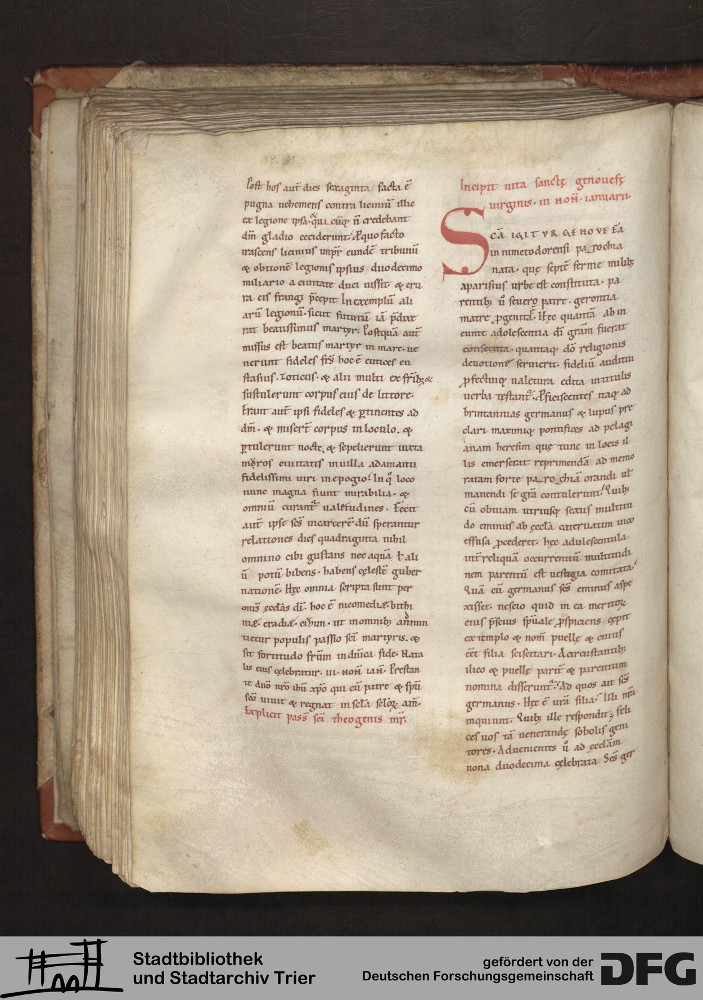 Post hos aut̄ dies sexaginta facta ē
pugna uehemens contra liciniū illic
ex legione ipsa. qui cūq; n̄ credebant
dm̄ gladio ceciderunt. Ex quo facto
irascens licinius impr̄ eundē tribunū
& obtionē legionis ipsius duodecimo
miliario a ciuitate duci iussit & cru
ra eis frangi p̄cepit In exemplū ali
arū legionū. sicut futurū iā p̄dixe
rat beatissimus martyr. Postquā aut̄
missus est beatus martyr in mare. ue
nerunt fideles frs̄ hoc ē eutices eu
stasius. Zoticus. & alii multi ex frib; &
sustulerunt corpus eius de littore.
Erant aut̄ ipsi fideles & ptinentes ad
dm̄. & misert̄ corpus in loculo. &
ptulerunt nocte. & sepelierunt iuxta
muros ciuitatis in uilla adamantii
fidelissimi uiri in epogio. In quo loco
nunc magna fiunt mirabilia. &
omniū curant̄ ualitudines. Fecit
aut̄ ipse scs̄ in carcere dū sperantur
relationes dies quadraginta nihil
omnino cibi gustans nec aquā t ali
ū potū bibens. habens cęlestē guber
nationē. Hęc omnia scripta sunt per
omīs ecclas dī. hoc ē nicomediæ. bithi
niæ.
tietur populis passio sci martyris. &
sit fortitudo frūm in dnica fide. Nata
lis eius cęlebratur. iii. non̄ ian̄. Prestan
te dn̄o nr̄o ihū xp̄o qui cū patre & spū
sc̄o uiuit & regnat in sc̄la sclo℞. am̄.
Explicit pass̄ sci theogenis mr̄.
Incipit uita sanctę genouefę
uirginis. iii non̄. ianuarii.
SCĀ IGITVR GENOVEFA
in nimetodorensi parrochia
nata. quę septē ferme milib;
a parisius urbe est constituta. pa
rentib; ū seuero patre. gerontia
matre pgenita. Hęc quantā ab in
eunte adolescentia dī gr̄am fuerat
consecuta. quantaq; dō religionis
deuotione seruierit. fideliū auditui
pfectuq; ualetura edita in titulis
uerba testant̄. Pficiscentes itaq; ad
britannias germanus & lupus pre
clari maximiq; pontifices ad pelagi
anam heresim quę tunc in locis il
lis emerserit reprimendā ad memo
ratam forte parrochiam orandi ul'
manendi se gr̄a contulerunt. Quib;
cū obuiam utriusq; sexus multitu
do eminus ab ęccla cateruatim uico
effusa pcederet. hęc adulescentula
int̄ reliquā occurrentiū multitudi
nem parentū est uestigia comitata.
Quā cū germanus scs̄ eminus aspe
xisset. nescio quid in ea merito℞
eius p̄scius sp̄uale pspiciens cępit
extemplo & nom̄ puellę & cuius
eēt filia sciscitari. A circustantib;
ilico & puellę parit̄ & parentum
nomina disserunt̄. Ad quos ait scs̄
germanus. Hęc ē urā filia. Illi nr̄a
inquiunt. Quib; ille respondit; feli
ces uos tā uenerandę sobolis geni
tores. Aduenientes ū ad ęcclam
nona duodecima cęlebrata. Scs̄ ger
Stadtbibliothek
und Stadtarchiv Trier
gefördert von der
Deutschen Forschungsgemeinschaft
DFG